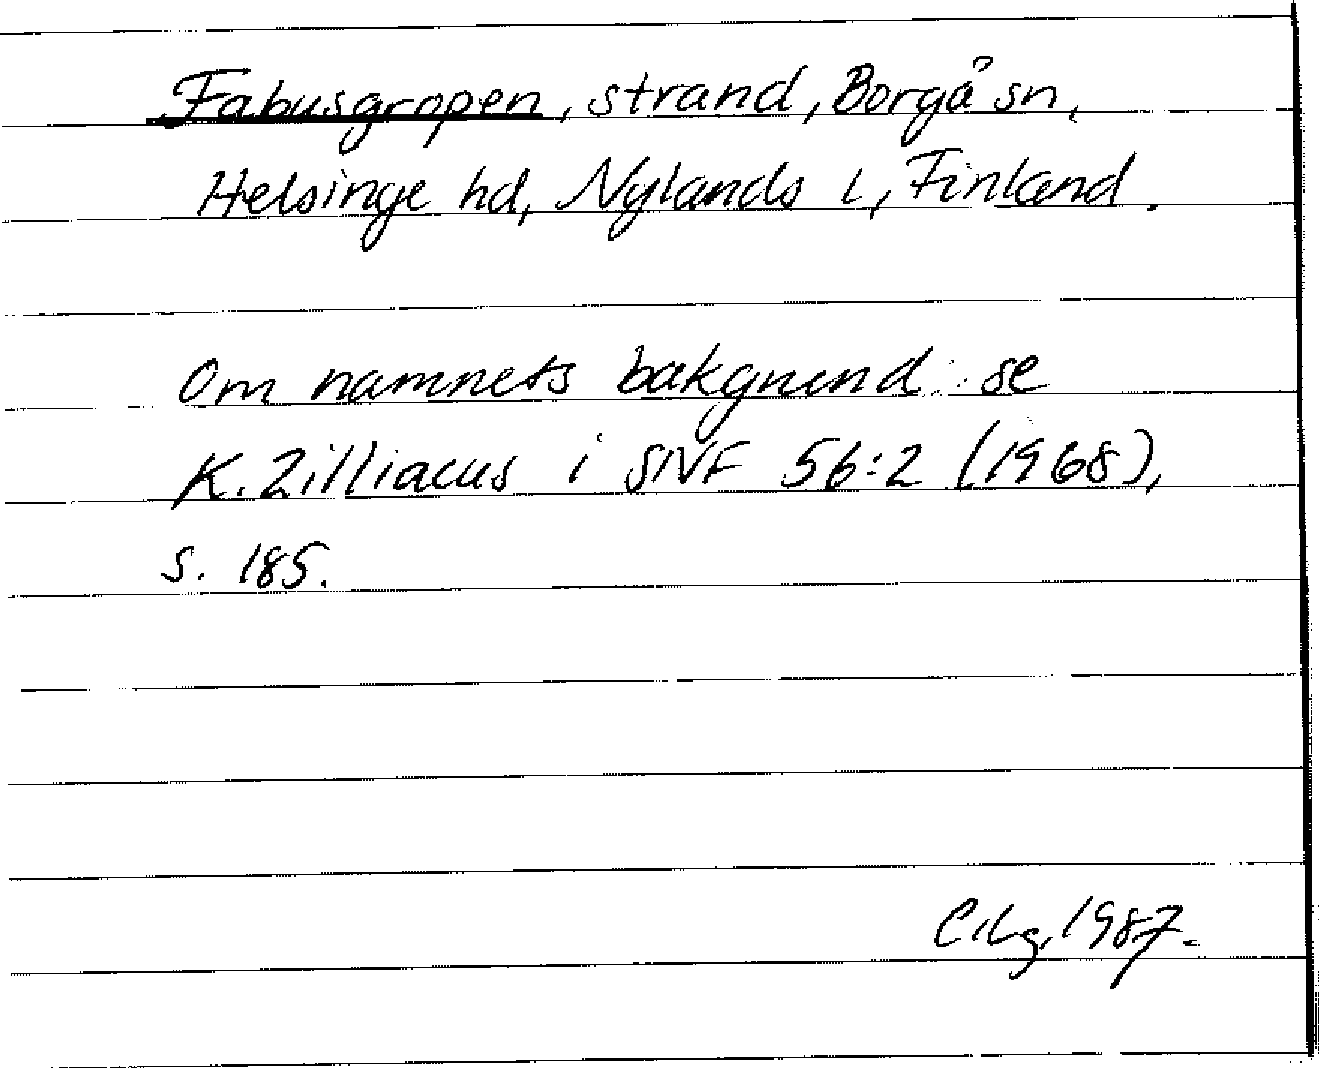 Fabusgropen, strand, Borgå sn,
Helsinge hd, Nylands l, Finland.
Om namnets bakgrund: se
K. Zilliacus i SNF 56:2 (1968),
s. 185.
1987.